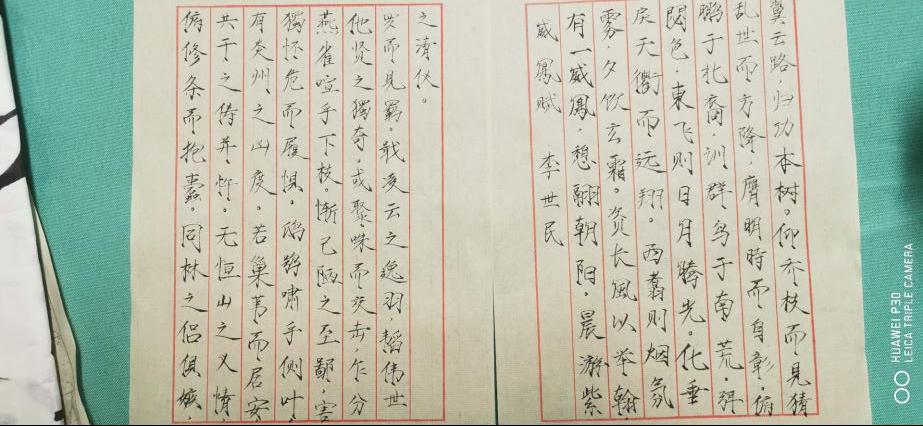 威鳳赋 李世民
有一威鳳，想翮朝阳。晨游紫
雾，夕饮玄霜。资长風以举翰，
戾天衢而远翔。西翥则烟氛
閟色，東飞则日月腾光。化垂
鹏于北裔，训群鸟于南荒。弭
乱世而方降，膺明時而自彰。俯
翼云路，归功本树。仰乔枝而見猜，
俯修条而抱蠹。同林之侣俱嫉，
共干之俦并忤。无恒山之义情，
有炎州之凶度。若巢苇而居安，
獨怀危而履惧。鸱鸮啸乎侧叶，
燕雀喧乎下枝。惭己陋之至鄙，害
他贤之獨奇。或聚咮而交击，乍分
罗而見羁。戢凌云之逸羽，韬伟世
之清仪。
HUAWEI P30
LEICA TRIPLE CAMERA